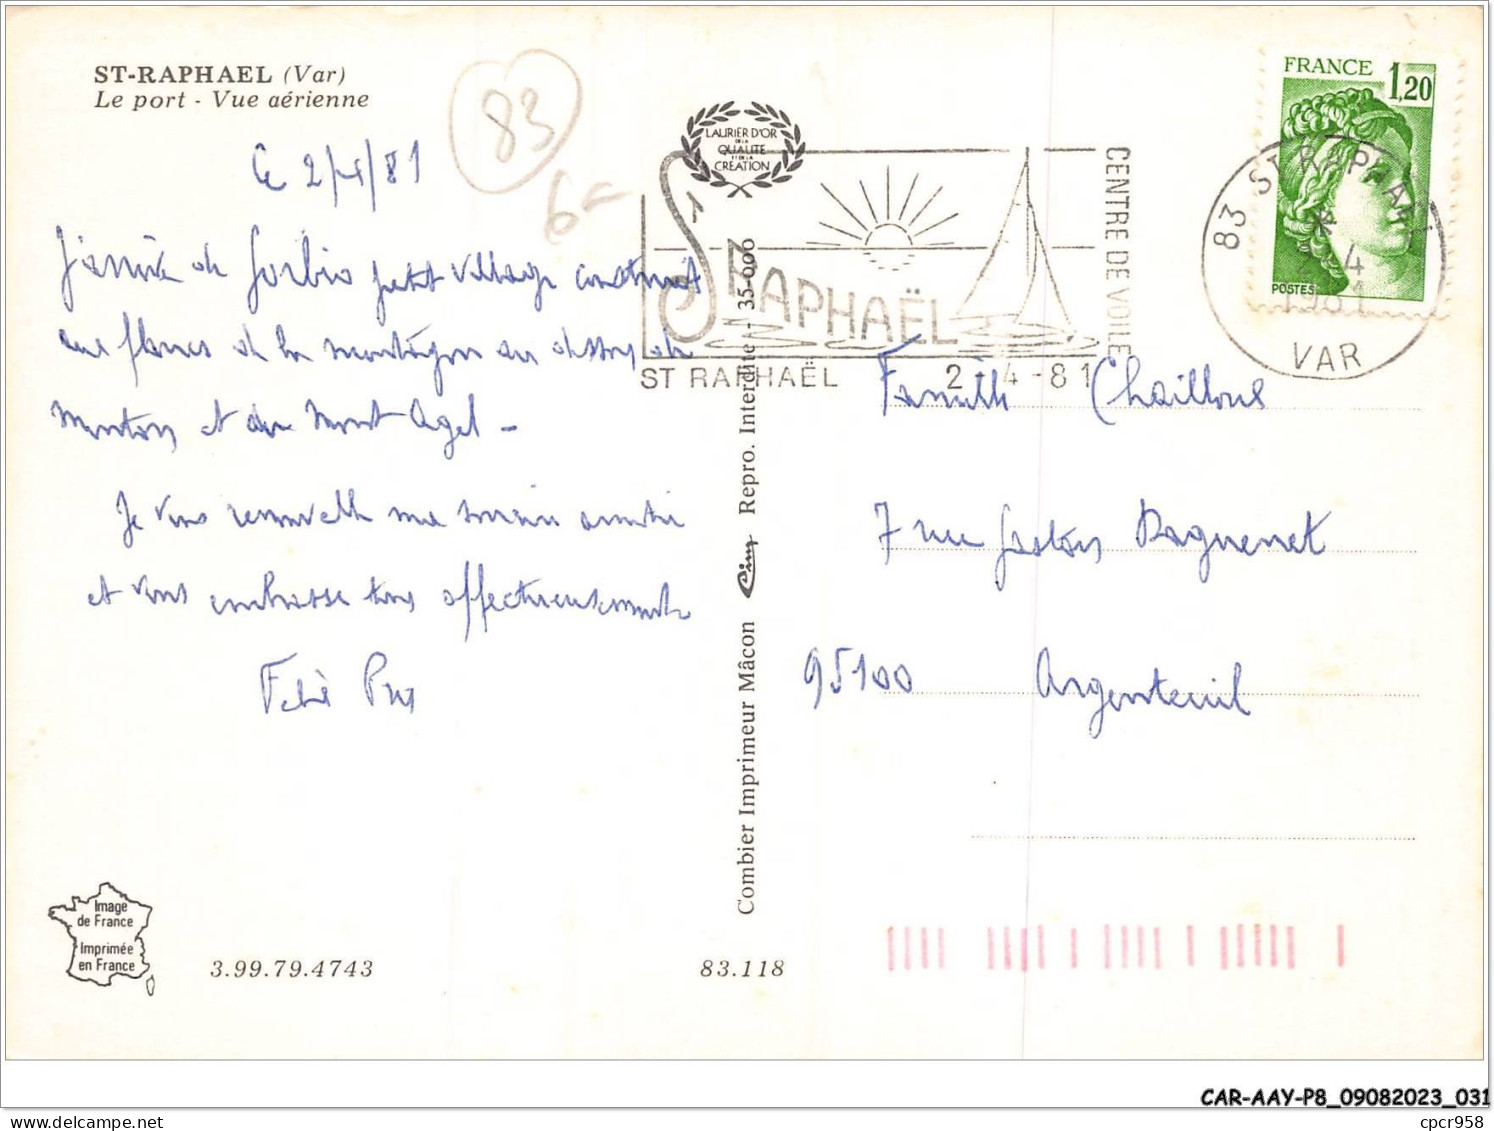 ST-RAPHAEL (Var)
Le port - Vue aérienne
83
6-
Le 2/4/81
J'arrive de Gorbio petit village construit
aux flancs de la montagne au dessus de
Menton et du Mont Agel -
Je vous renouvelle ma amitié
et vous embrasse tous affectueusement
LAURIER D'OR
DE LA
QUALITE
ET DE LA
CREATION
ST RAPHAËL
CENTRE DE VOILE
ST RAPHAËL 2-4-81
FRANCE 1,20
POSTES
83 ST RAPHAEL
*
2-4
1981
VAR
Famille Chaillous
7 rue Gaston Raguenet
95100 Argenteuil
Combier Imprimeur Mâcon Cim Repro. Interdite - 35-000
Image
de France
Imprimée
en France
3.99.79.4743
83.118
CAR-AAY-P8_09082023_031
delcampe.net
cpcr958